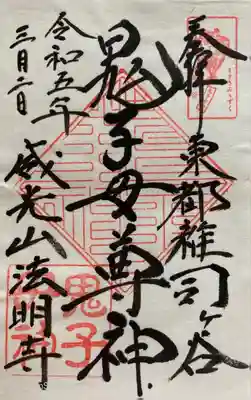 奉拝
東都雑司ヶ谷
鬼子母尊神
令和五年
三月二日
威光山法明寺
鬼子